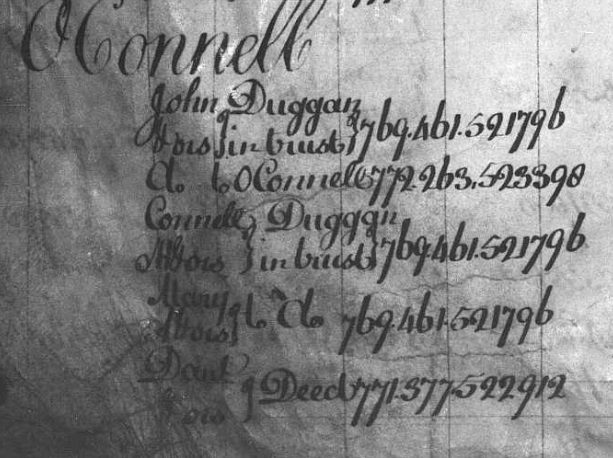 O'Connell
John } Duggan
& ors } in trust } 769.461.521796
Do to O'Connell 772.263.523398
Connell } Duggan
& ors } in trust } 769.461.521796
Mary
& ors } to Do 769.461.521796
Danl
& ors } Deed 771.377.522912